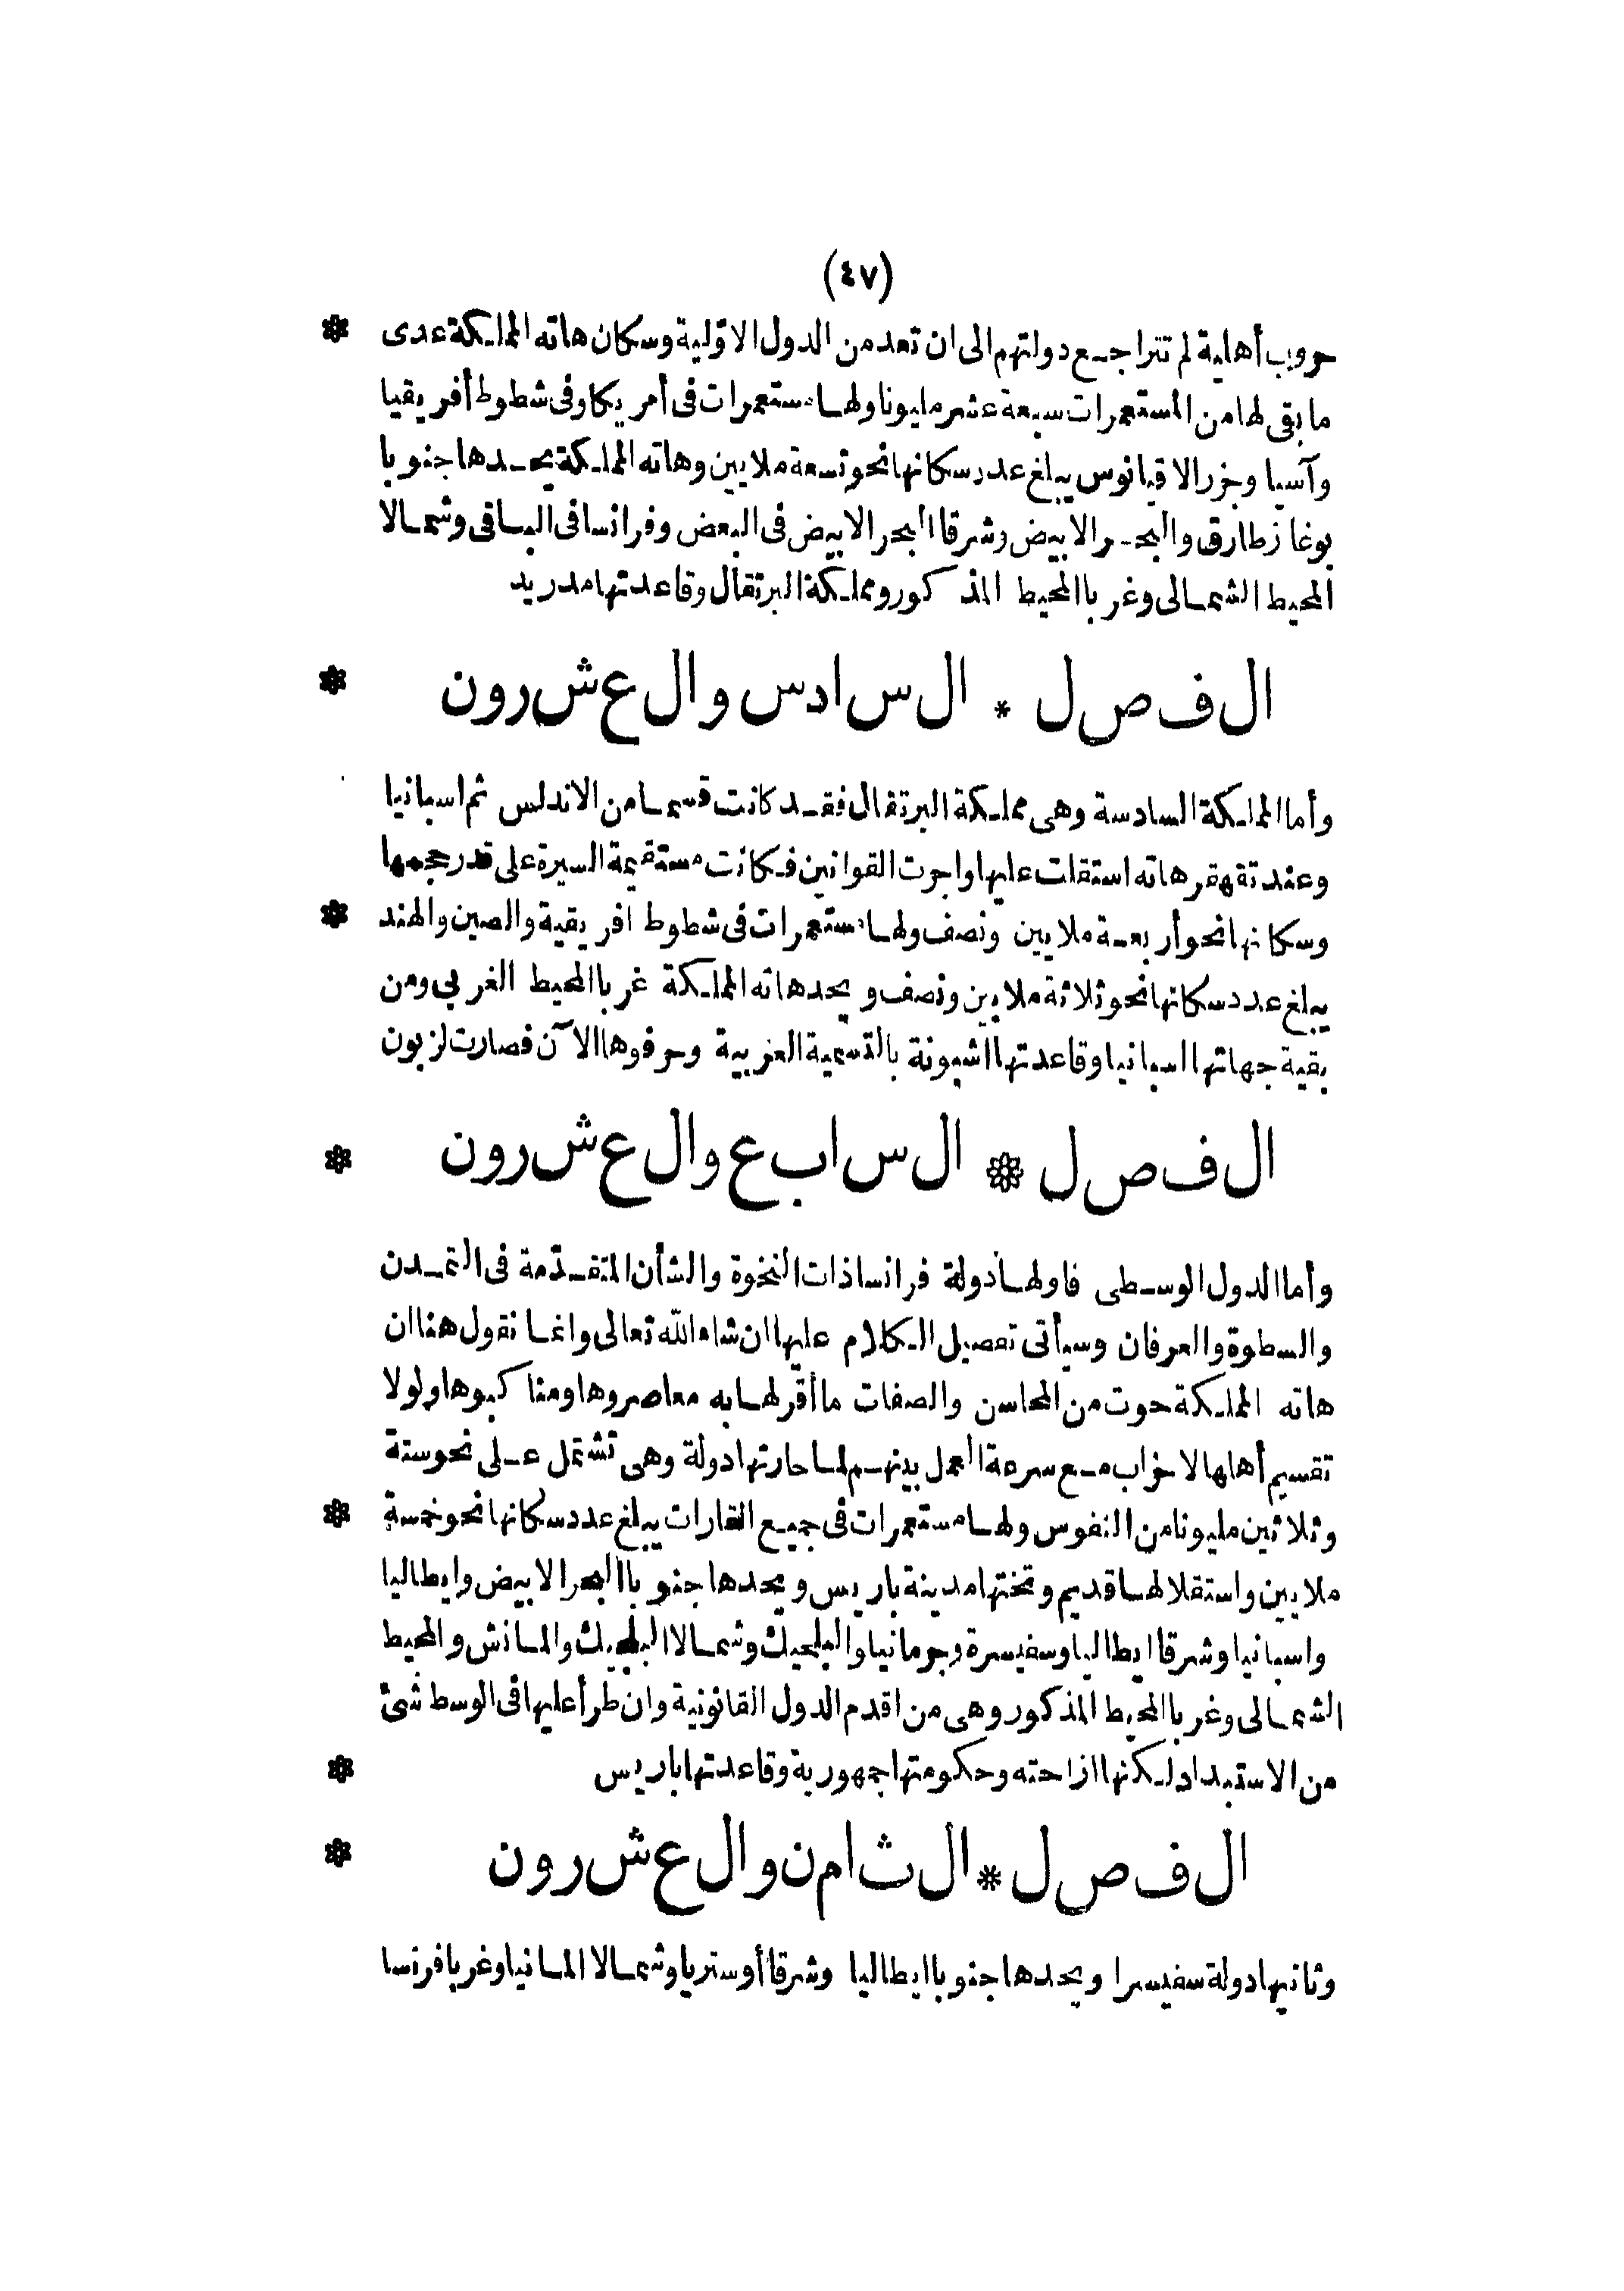 (٤٧)
حروب أهلية لم تتراجع دولتهم الى ان تعد من الدول الاوّلية وسكان هاته المملكة عدى *
ما بقى لها من المستعمرات سبعة عشر مليونا ولها مستعمرات فى أمريكا وفى شطوط أفريقيا
وآسيا وخزر الاقيانوس يبلغ عدد سكانها نحو تسعة ملايين وهاته المملكة يحدها جنوبا
بوغاز طارق والبحر الابيض وشرقا البحر الابيض فى البعض وفرانسا فى الباقى وشمالا
المحيط الشمالى وغربا المحيط المذكور ومملكة البرتقال وقاعدتها مدريد
الفصل * السادس والعشرون *
وأما المملكة السادسة وهى مملكة البرتقال فقد كانت قسما من الاندلس ثم اسبانيا
وعند تقهقر هاته استقلت عليها واجرت القوانين فكانت مستقيمة السيرة على قدر حجمها
وسكانها نحو أربعة ملايين ونصف ولها مستعمرات فى شطوط افريقية والصين والهند *
يبلغ عدد سكانها نحو ثلاثة ملايين ونصف ويحد هاته المملكة غربا المحيط الغربى ومن
بقية جهاتها اسبانيا وقاعدتها اشبونة بالتسمية العربية وحرفوها الآن فصارت لزبون
الفصل * السابع والعشرون *
وأما الدول الوسطى فاولها دولة فرانسا ذات النخوة والشأن المتقدّمة فى التمدن
والسطوة والعرفان وسيأتى تفصيل الكلام عليها ان شاء الله تعالى وانما نقول هنا ان
هاته المملكة حوت من المحاسن والصفات ما أقر لها به معاصروها ومناكبوها ولولا
تقسيم أهلها لاحزاب مع سرعة العمل بينهم لما حارتها دولة وهى تشتمل على نحو ستة
وثلاثين مليونا من النفوس ولها مستعمرات فى جميع القارات يبلغ عدد سكانها نحو خمسة *
ملايين واستقلالها قديم وتختها مدينة باريس ويحدها جنوبا البحر الابيض وايطاليا
واسبانيا وشرقا ايطاليا وسفيسرة وجرمانيا والبلجيك وشمالا البلجيك والمانش والمحيط
الشمالى وغربا المحيط المذكور وهى من اقدم الدول القانونية وان طرأ عليها فى الوسط شئ
من الاستبداد لكنها ازاحته وحكومتها جمهورية وقاعدتها باريس *
الفصل * الثامن والعشرون *
وثانيها دولة سفيسرا ويحدها جنوبا ايطاليا وشرقا أوستريا وشمالا المانيا وغربا فرنسا